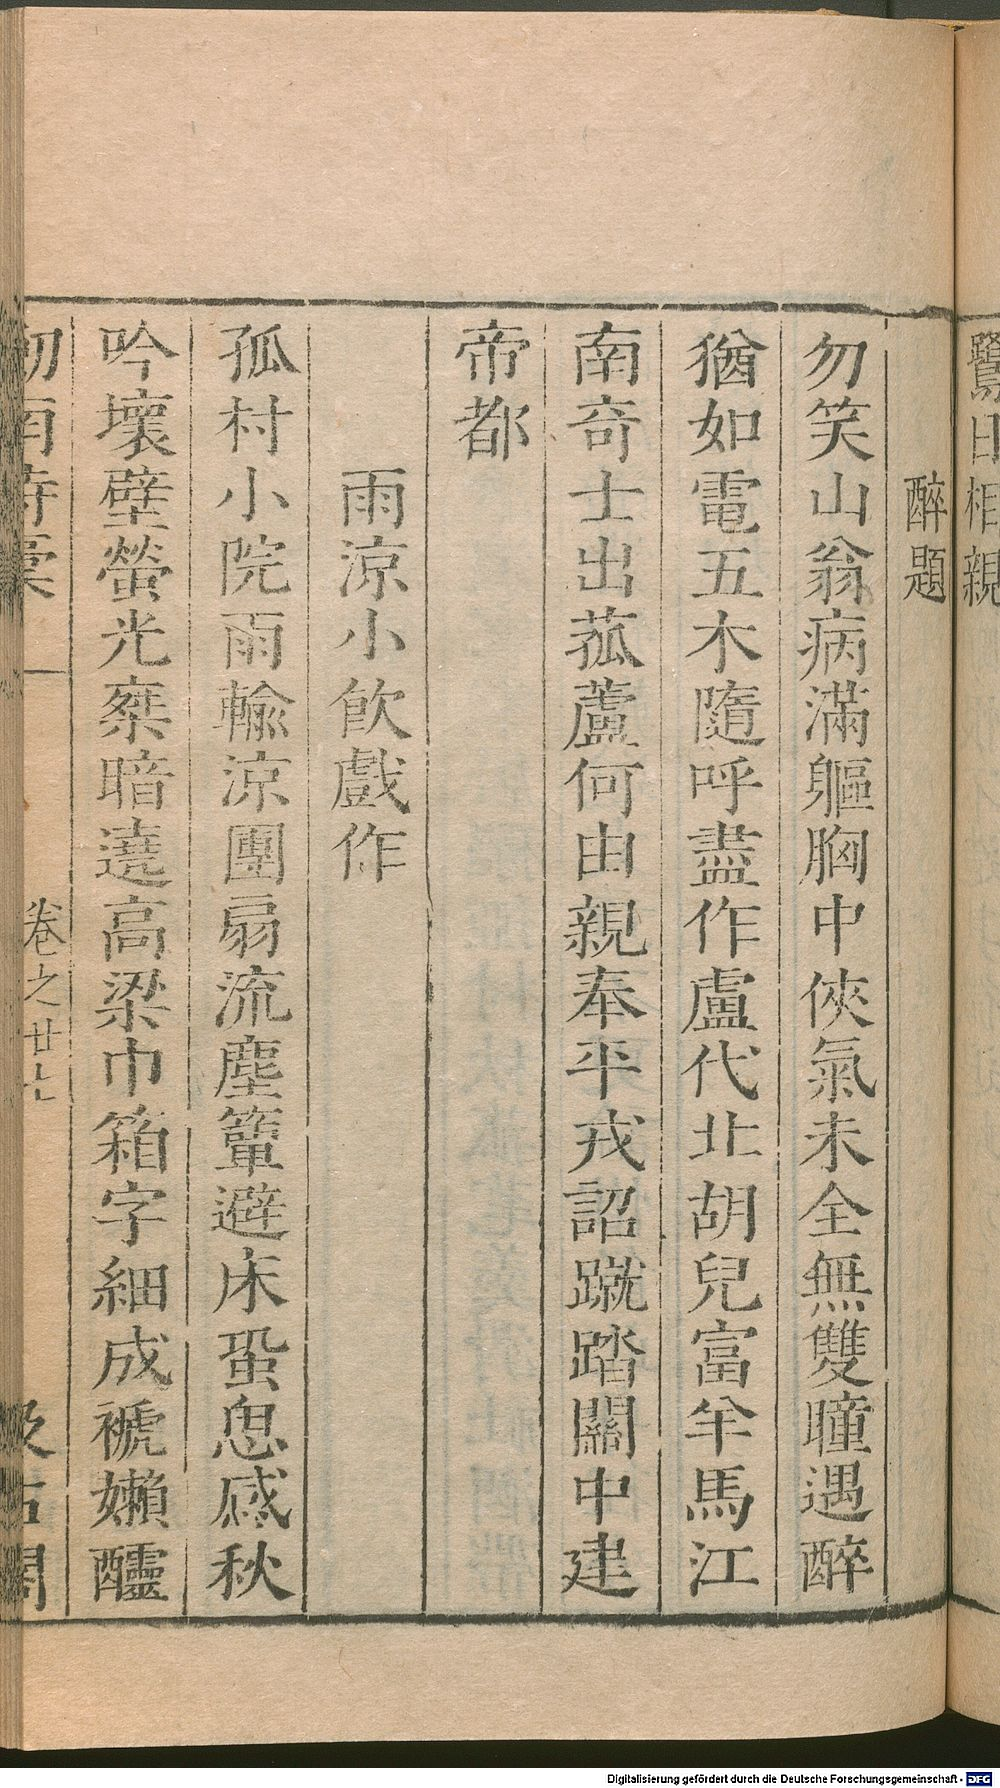 鷺日相親
醉題
勿笑山翁病滿軀胸中俠氣未全無雙瞳遇醉
猶如電五木隨呼盡作盧代北胡兒富羊馬江
南奇士出菰蘆何由親奉平戎詔蹴踏關中建
帝都
雨涼小飲戲作
孤村小院雨輸涼團扇流塵簟避床蛩怱感秋
吟壞壁螢光乘暗遶高梁巾箱字細成褫嬾醽
劒南詩稾
卷之廿七
汲古閣
Digitalisierung gefördert durch die Deutsche Forschungsgemeinschaft - DFG